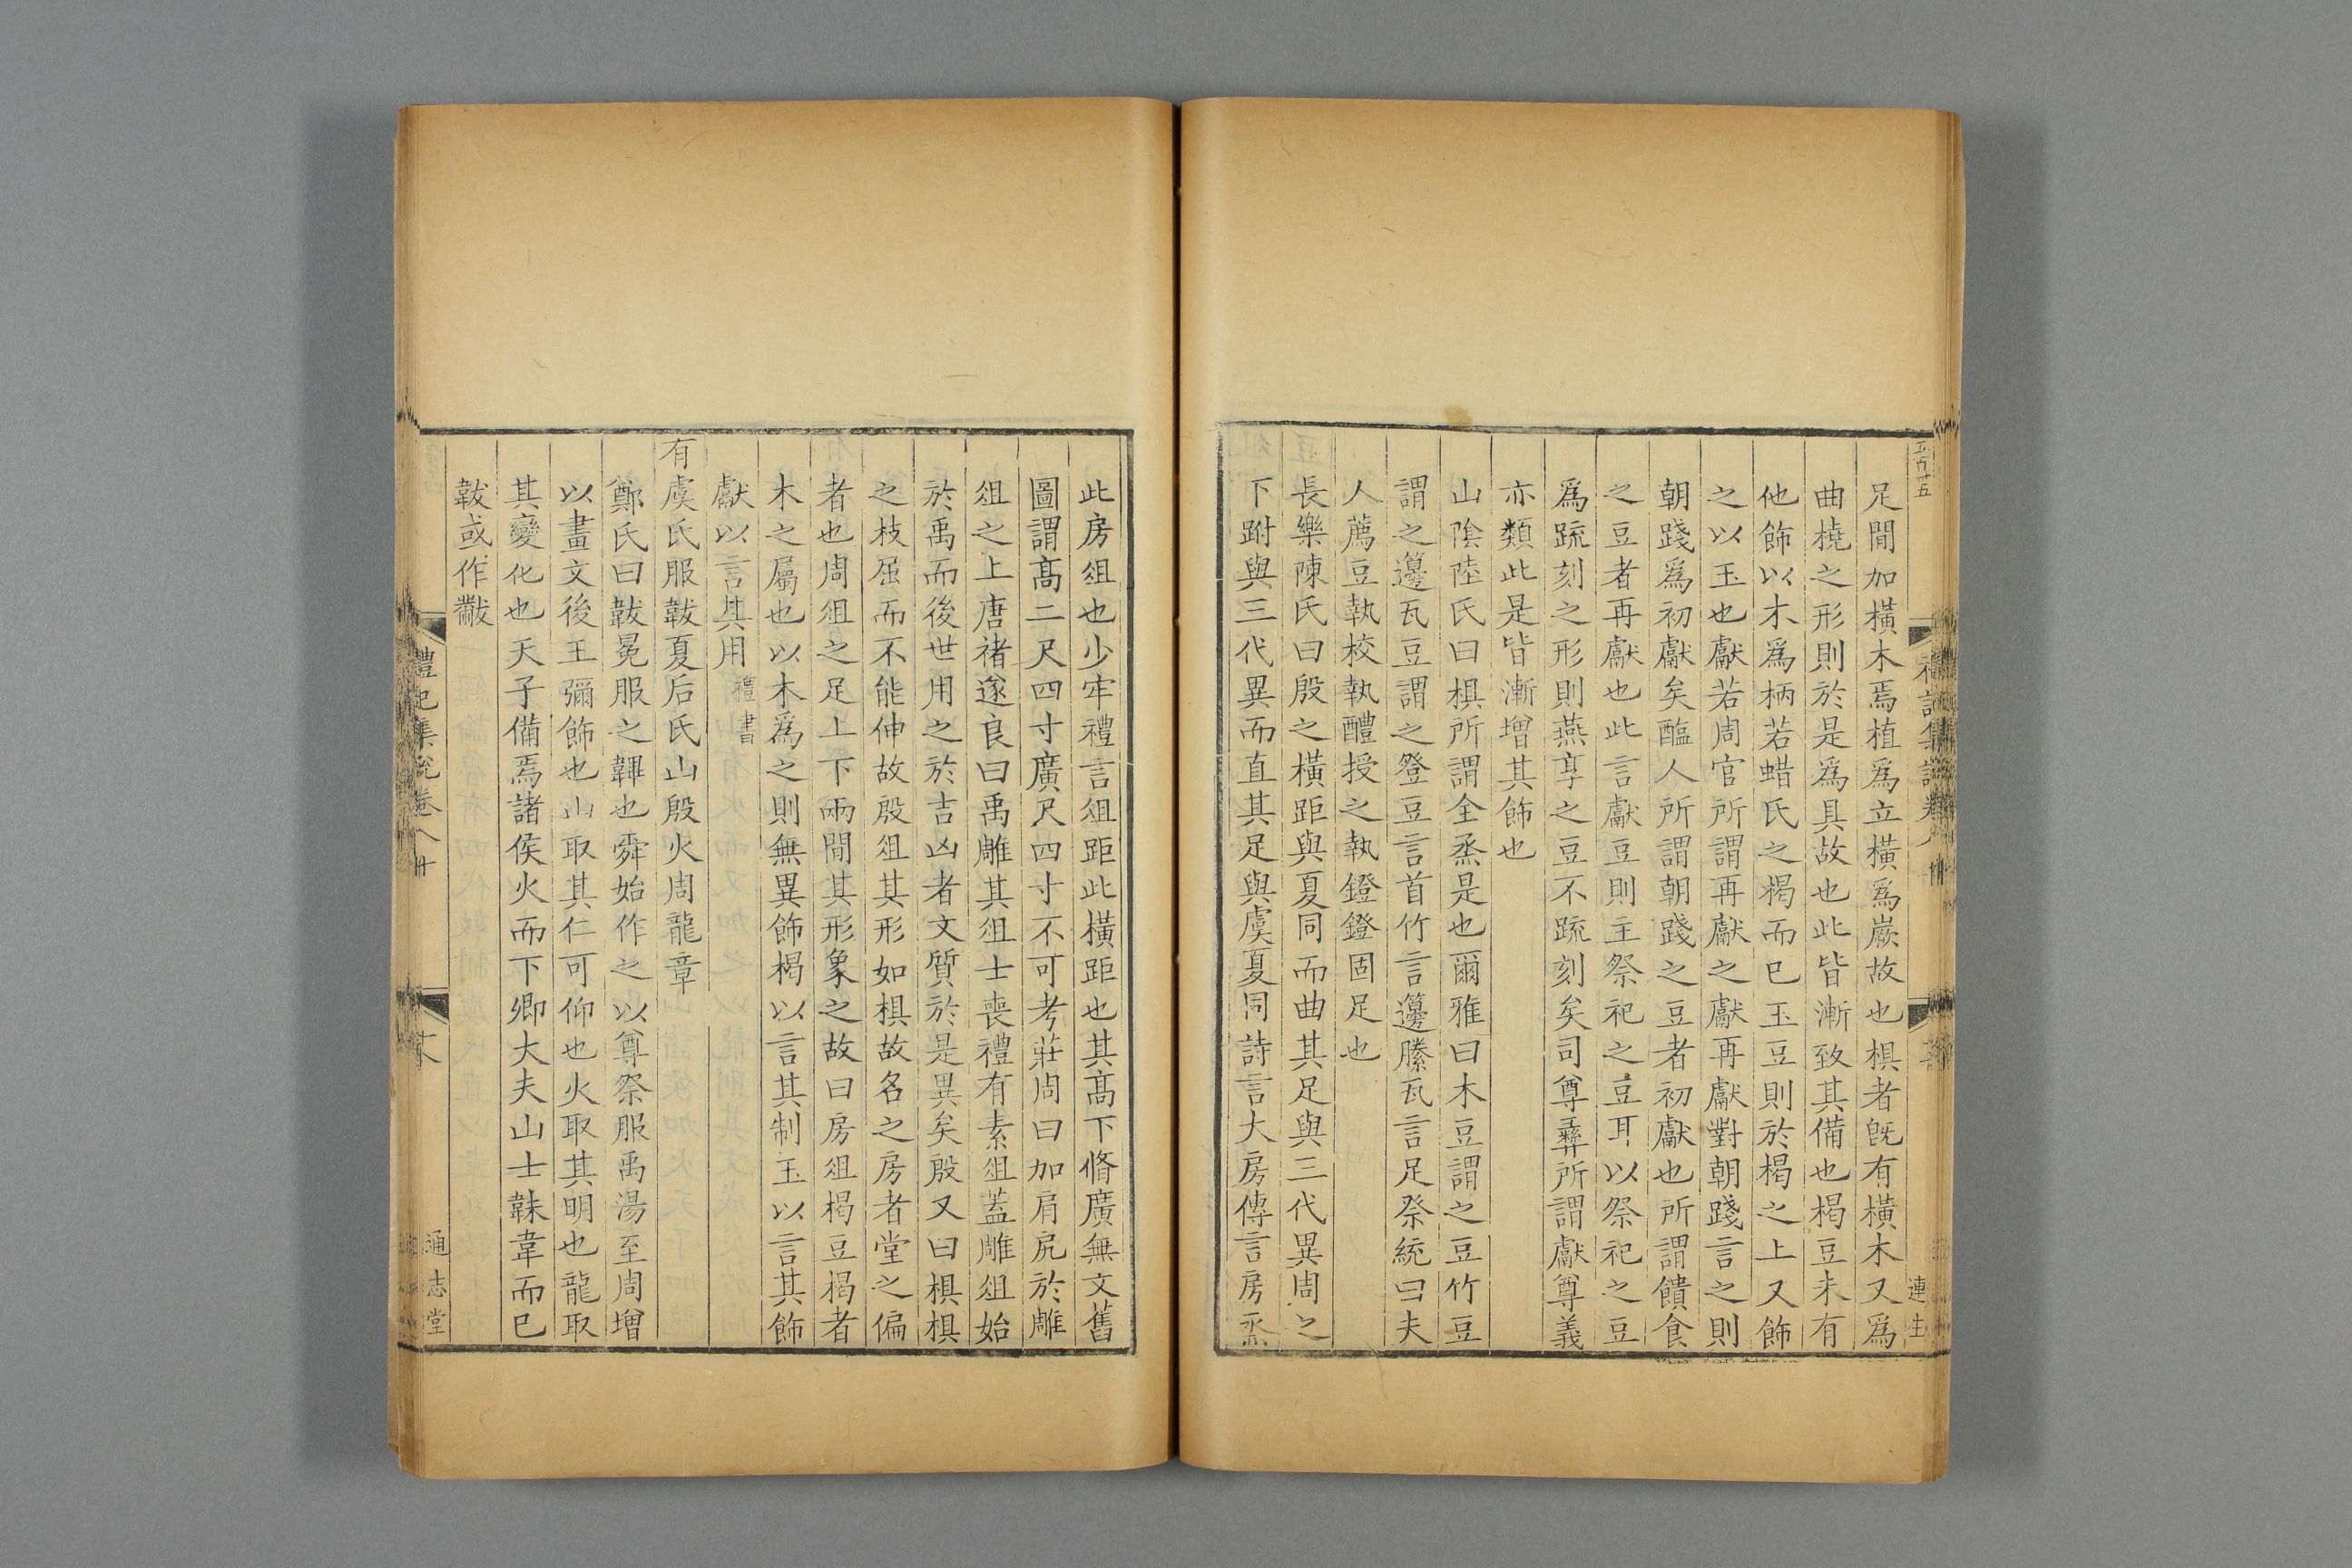 五百卅五
足閒加橫木焉植爲立橫爲嶡故也椇者旣有橫木又爲
曲橈之形則於是爲具故也此皆漸致其備也楬豆未有
他飾以木爲柄若蜡氏之楬而已玉豆則於楬之上又飾
之以玉也獻若周官所謂再獻之獻再獻對朝踐言之則
朝踐爲初獻矣醢人所謂朝踐之豆者初獻也所謂饋食
之豆者再獻也此言獻豆則主祭祀之豆耳以祭祀之豆
爲疏刻之形則燕享之豆不疏刻矣司尊彝所謂獻尊義
亦類此是皆漸增其飾也
山陰陸氏曰椇所謂全烝是也爾雅曰木豆謂之豆竹豆
謂之籩瓦豆謂之登豆言首竹言籩縢瓦言足祭統曰夫
人薦豆執校執醴授之執鐙鐙固足也
長樂陳氏曰殷之橫距與夏同而曲其足與三代異周之
下跗與三代異而直其足與虞夏同詩言大房傳言房烝
此房俎也少牢禮言俎距此橫距也其高下脩廣無文舊
圖謂高二尺四寸廣尺四寸不可考莊周曰加肩尻於雕
俎之上唐禇遂良曰禹雕其俎士喪禮有素俎蓋雕俎始
於禹而後世用之於吉凶者文質於是異矣殷又曰椇椇
之枝屈而不能伸故殷俎其形如椇故名之房者堂之偏
者也周俎之足上下兩閒其形象之故曰房俎楬豆楬者
木之屬也以木爲之則無異飾楬以言其制玉以言其飾
獻以言其用禮書
有虞氏服韍夏后氏山殷火周龍章
鄭氏曰韍冕服之韠也舜始作之以尊祭服禹湯至周增
以畫文後王彌飾也山取其仁可仰也火取其明也龍取
其變化也天子備焉諸侯火而下卿大夫山士韎韋而已
韍或作黻
禮記集說卷八十
通志堂